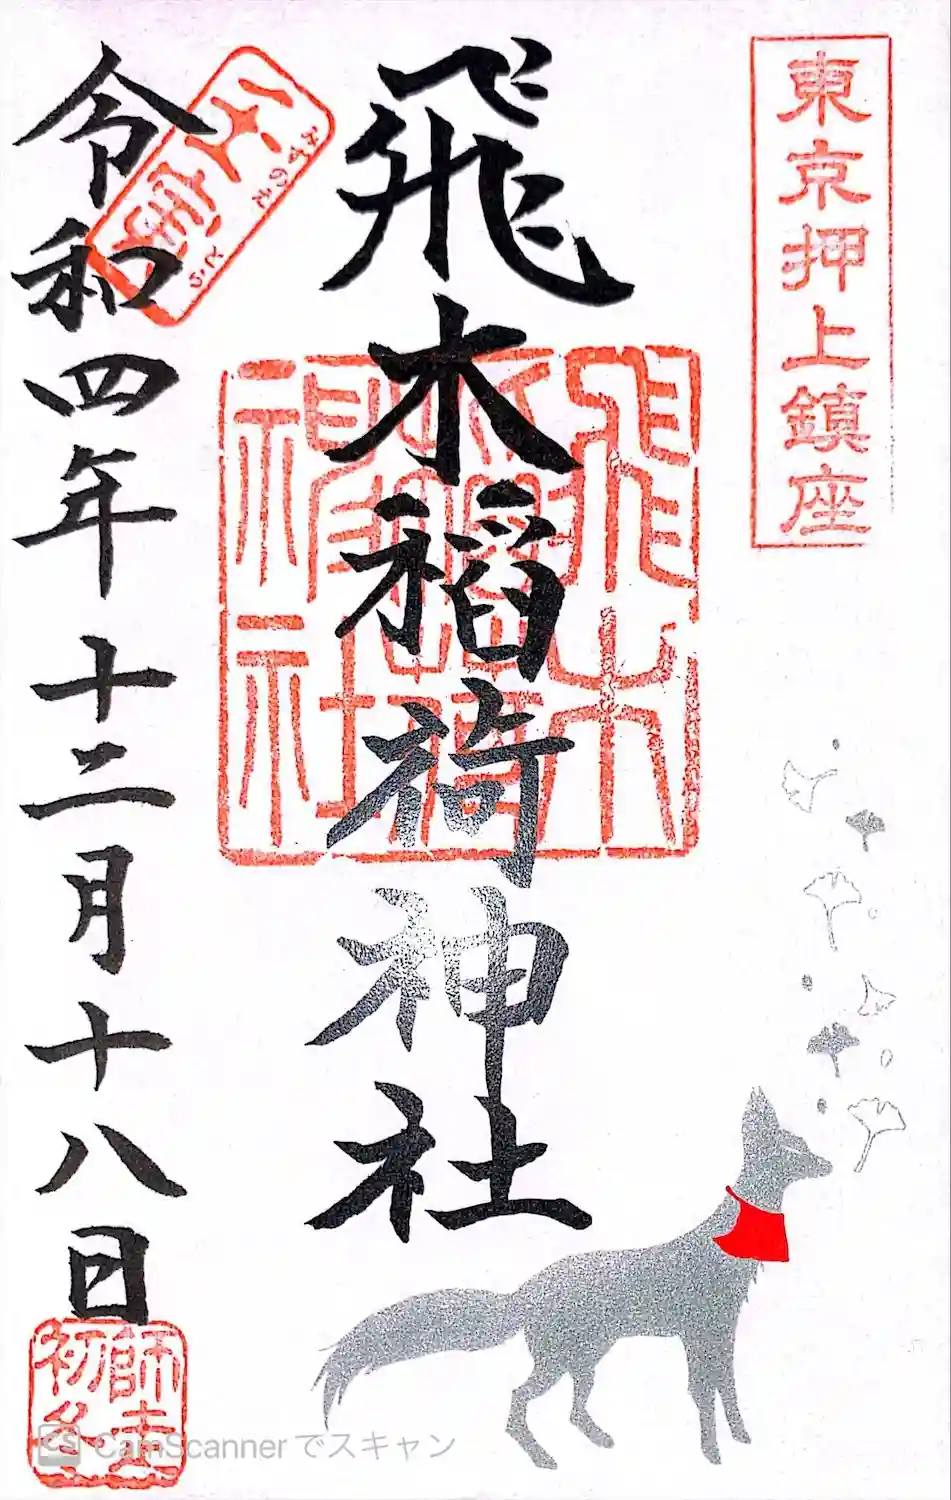 東京押上鎮座
飛木稲荷神社
飛木稲荷神社
令和四年十二月十八日
師走
初冬
CamScannerでスキャン